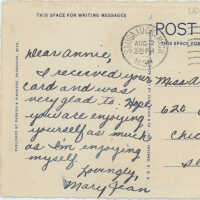 THIS SPACE FOR WRITING MESSAGES
POST
THIS SPACE FOR
Dear Annie,
I received your
card and was
very glad to. Hope
you are enjoying
yourself as much
as I'm enjoying
myself.
Lovingly,
Mary Jean
SAUGATUCK
AUG
PM
Miss A
620
Chic